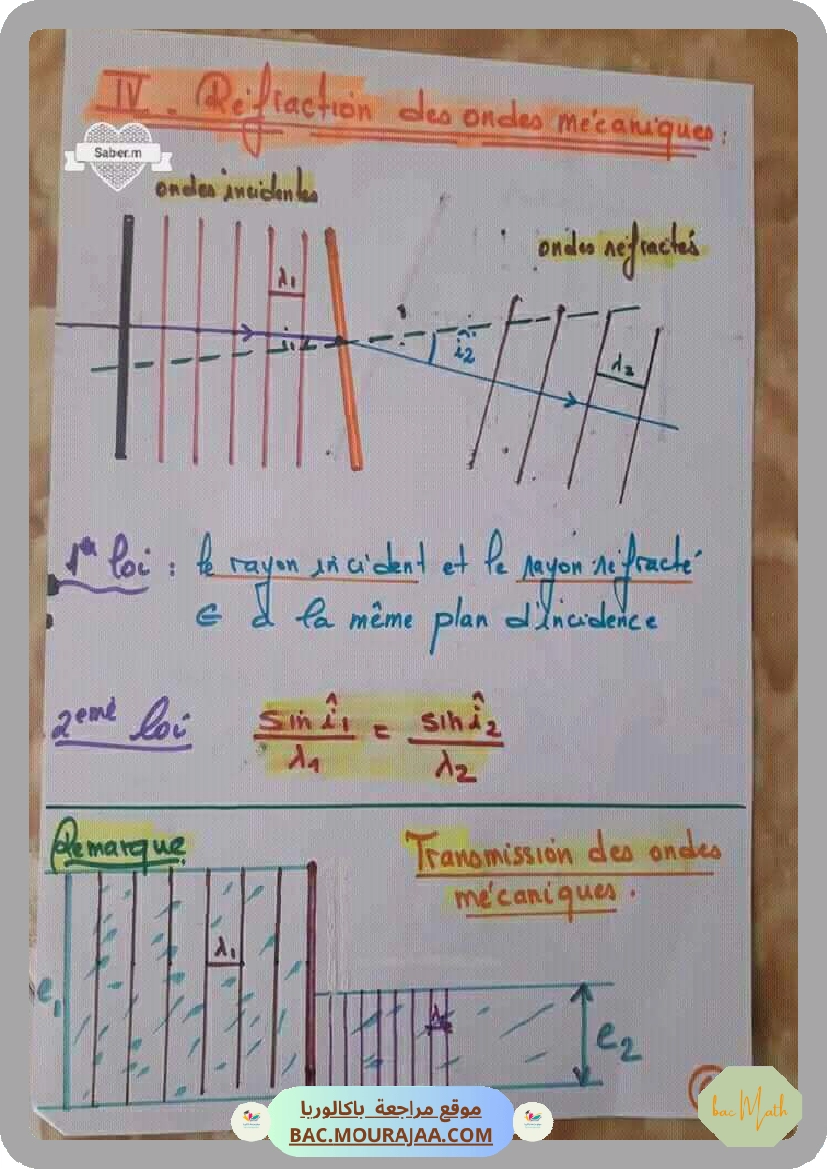 IV. Réfraction des ondes mécaniques :
Saber.m
ondes incidentes
ondes réfractés
λ1
i1
i2
λ2
1ère loi : le rayon incident et le rayon réfracté
∈ à la même plan d'incidence
2eme loi
sin î1 / λ1 = sin î2 / λ2
Remarque
Transmission des ondes
mécaniques.
λ1
e1
e2
موقع مراجعة باكالوريا
BAC.MOURAJAA.COM
bac Math